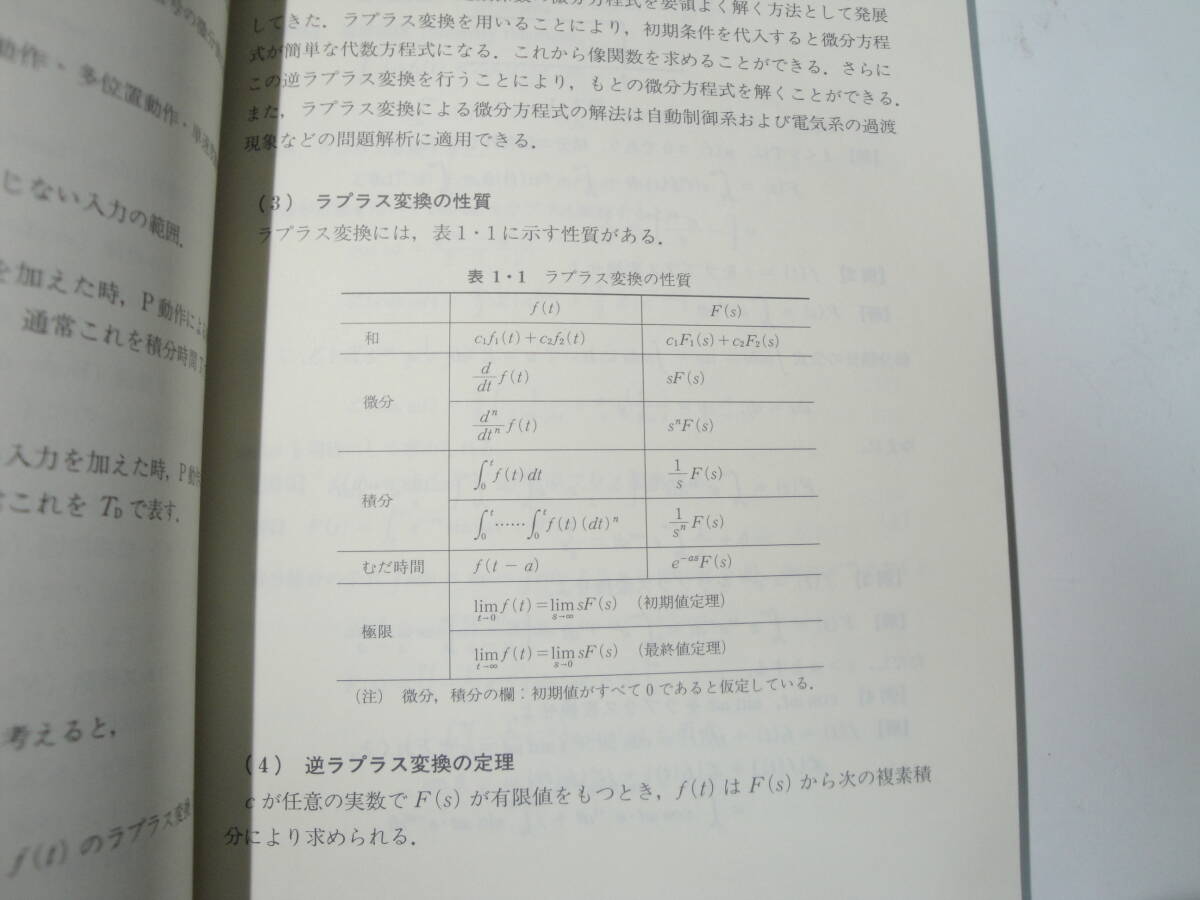 号の微分
動作・多位置動作・単速度
じない入力の範囲.
を加えた時, P動作によ
通常これを積分時間 T
入力を加えた時, P動
これを T_D で表す.
考えると,
f(t) のラプラス変換
の微分方程式を要領よく解く方法として発展
してきた. ラプラス変換を用いることにより, 初期条件を代入すると微分方程
式が簡単な代数方程式になる. これから像関数を求めることができる. さらに
この逆ラプラス変換を行うことにより, もとの微分方程式を解くことができる.
また, ラプラス変換による微分方程式の解法は自動制御系および電気系の過渡
現象などの問題解析に適用できる.
(3) ラプラス変換の性質
ラプラス変換には, 表1・1に示す性質がある.
表 1・1 ラプラス変換の性質
f(t) F(s)
和 c₁f₁(t)+c₂f₂(t) c₁F₁(s)+c₂F₂(s)
微分 d/dt f(t) sF(s)
dⁿ/dtⁿ f(t) sⁿF(s)
積分 ∫₀ᵗ f(t) dt 1/s F(s)
∫₀ᵗ……∫₀ᵗ f(t) (dt)ⁿ 1/sⁿ F(s)
むだ時間 f(t − a) e^{−as}F(s)
極限 lim_{t→0} f(t)=lim_{s→∞} sF(s) (初期値定理)
lim_{t→∞} f(t)=lim_{s→0} sF(s) (最終値定理)
(注) 微分, 積分の欄:初期値がすべて0であると仮定している.
(4) 逆ラプラス変換の定理
c が任意の実数で F(s) が有限値をもつとき, f(t) は F(s) から次の複素積
分により求められる.